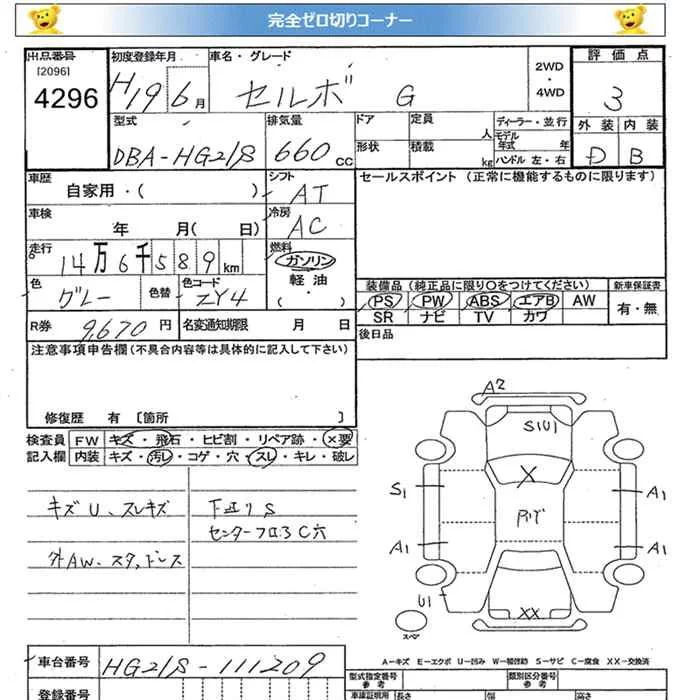 完全ゼロ切りコーナー
出品番号 初度登録年月 車名・グレード 2WD・4WD 評価点
[2096]
4296 H19 6月 セルボ G 3
型式 排気量 ドア 定員 人 ディーラー・並行 外装 内装
DBA-HG21S 660CC 形状 積載 kg モデル年式 年 ハンドル 左・右 D B
車歴 自家用・( ) シフト AT セールスポイント (正常に機能するものに限ります)
車検 年 月( 日) 冷房 AC
走行 14万6千589km 燃料 ガソリン 軽油
色 グレー 色替 色コード ZY4 装備品 (純正品に限り○をつけてください) 新車保証書
PS PW ABS エアB AW 有・無
SR ナビ TV カワ
R券 9,670円 名変通知期限 月 日 後日品
注意事項申告欄(不具合内容等は具体的に記入して下さい)
修復歴 有 〔箇所 〕
検査員 FW キズ・飛石・ヒビ割・リペア跡・×要
記入欄 内装 キズ・汚レ・コゲ・穴・スレ・キレ・破レ
キズ U、スレキズ
外AW、スタッドレス
下廻りS
センターフロアC穴
A2
S1U1
X
S1
A1
A1
A1
U1
XX
スペア
A-キズ E-エクボ U-凹み W-補修跡 S-サビ C-腐食 XX-交換済
車台番号 HG21S-111209
型式指定番号 参考 類別区分番号 参考
登録番号 車庫証明用 長さ 幅 高さ